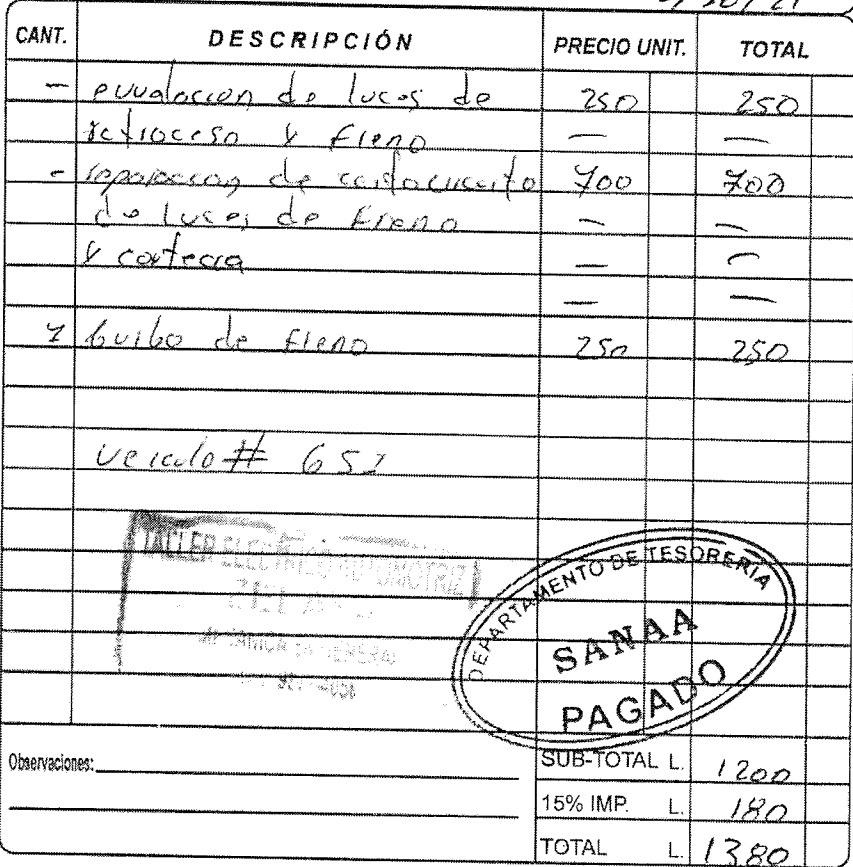 CANT. DESCRIPCIÓN PRECIO UNIT. TOTAL
- evvalocion de luces de 250 250
retroceso y freno — —
- reparacion de cortocircuito 700 700
de luces de freno — —
y corteria — —
— —
1 bulbo de freno 250 250
Veiculo # 652
TALLER ELECTRICO AUTOMOTRIZ
DEPARTAMENTO DE TESORERÍA
SANAA
PAGADO
Observaciones:
SUB-TOTAL L. 1200
15% IMP. L. 180
TOTAL L. 1380